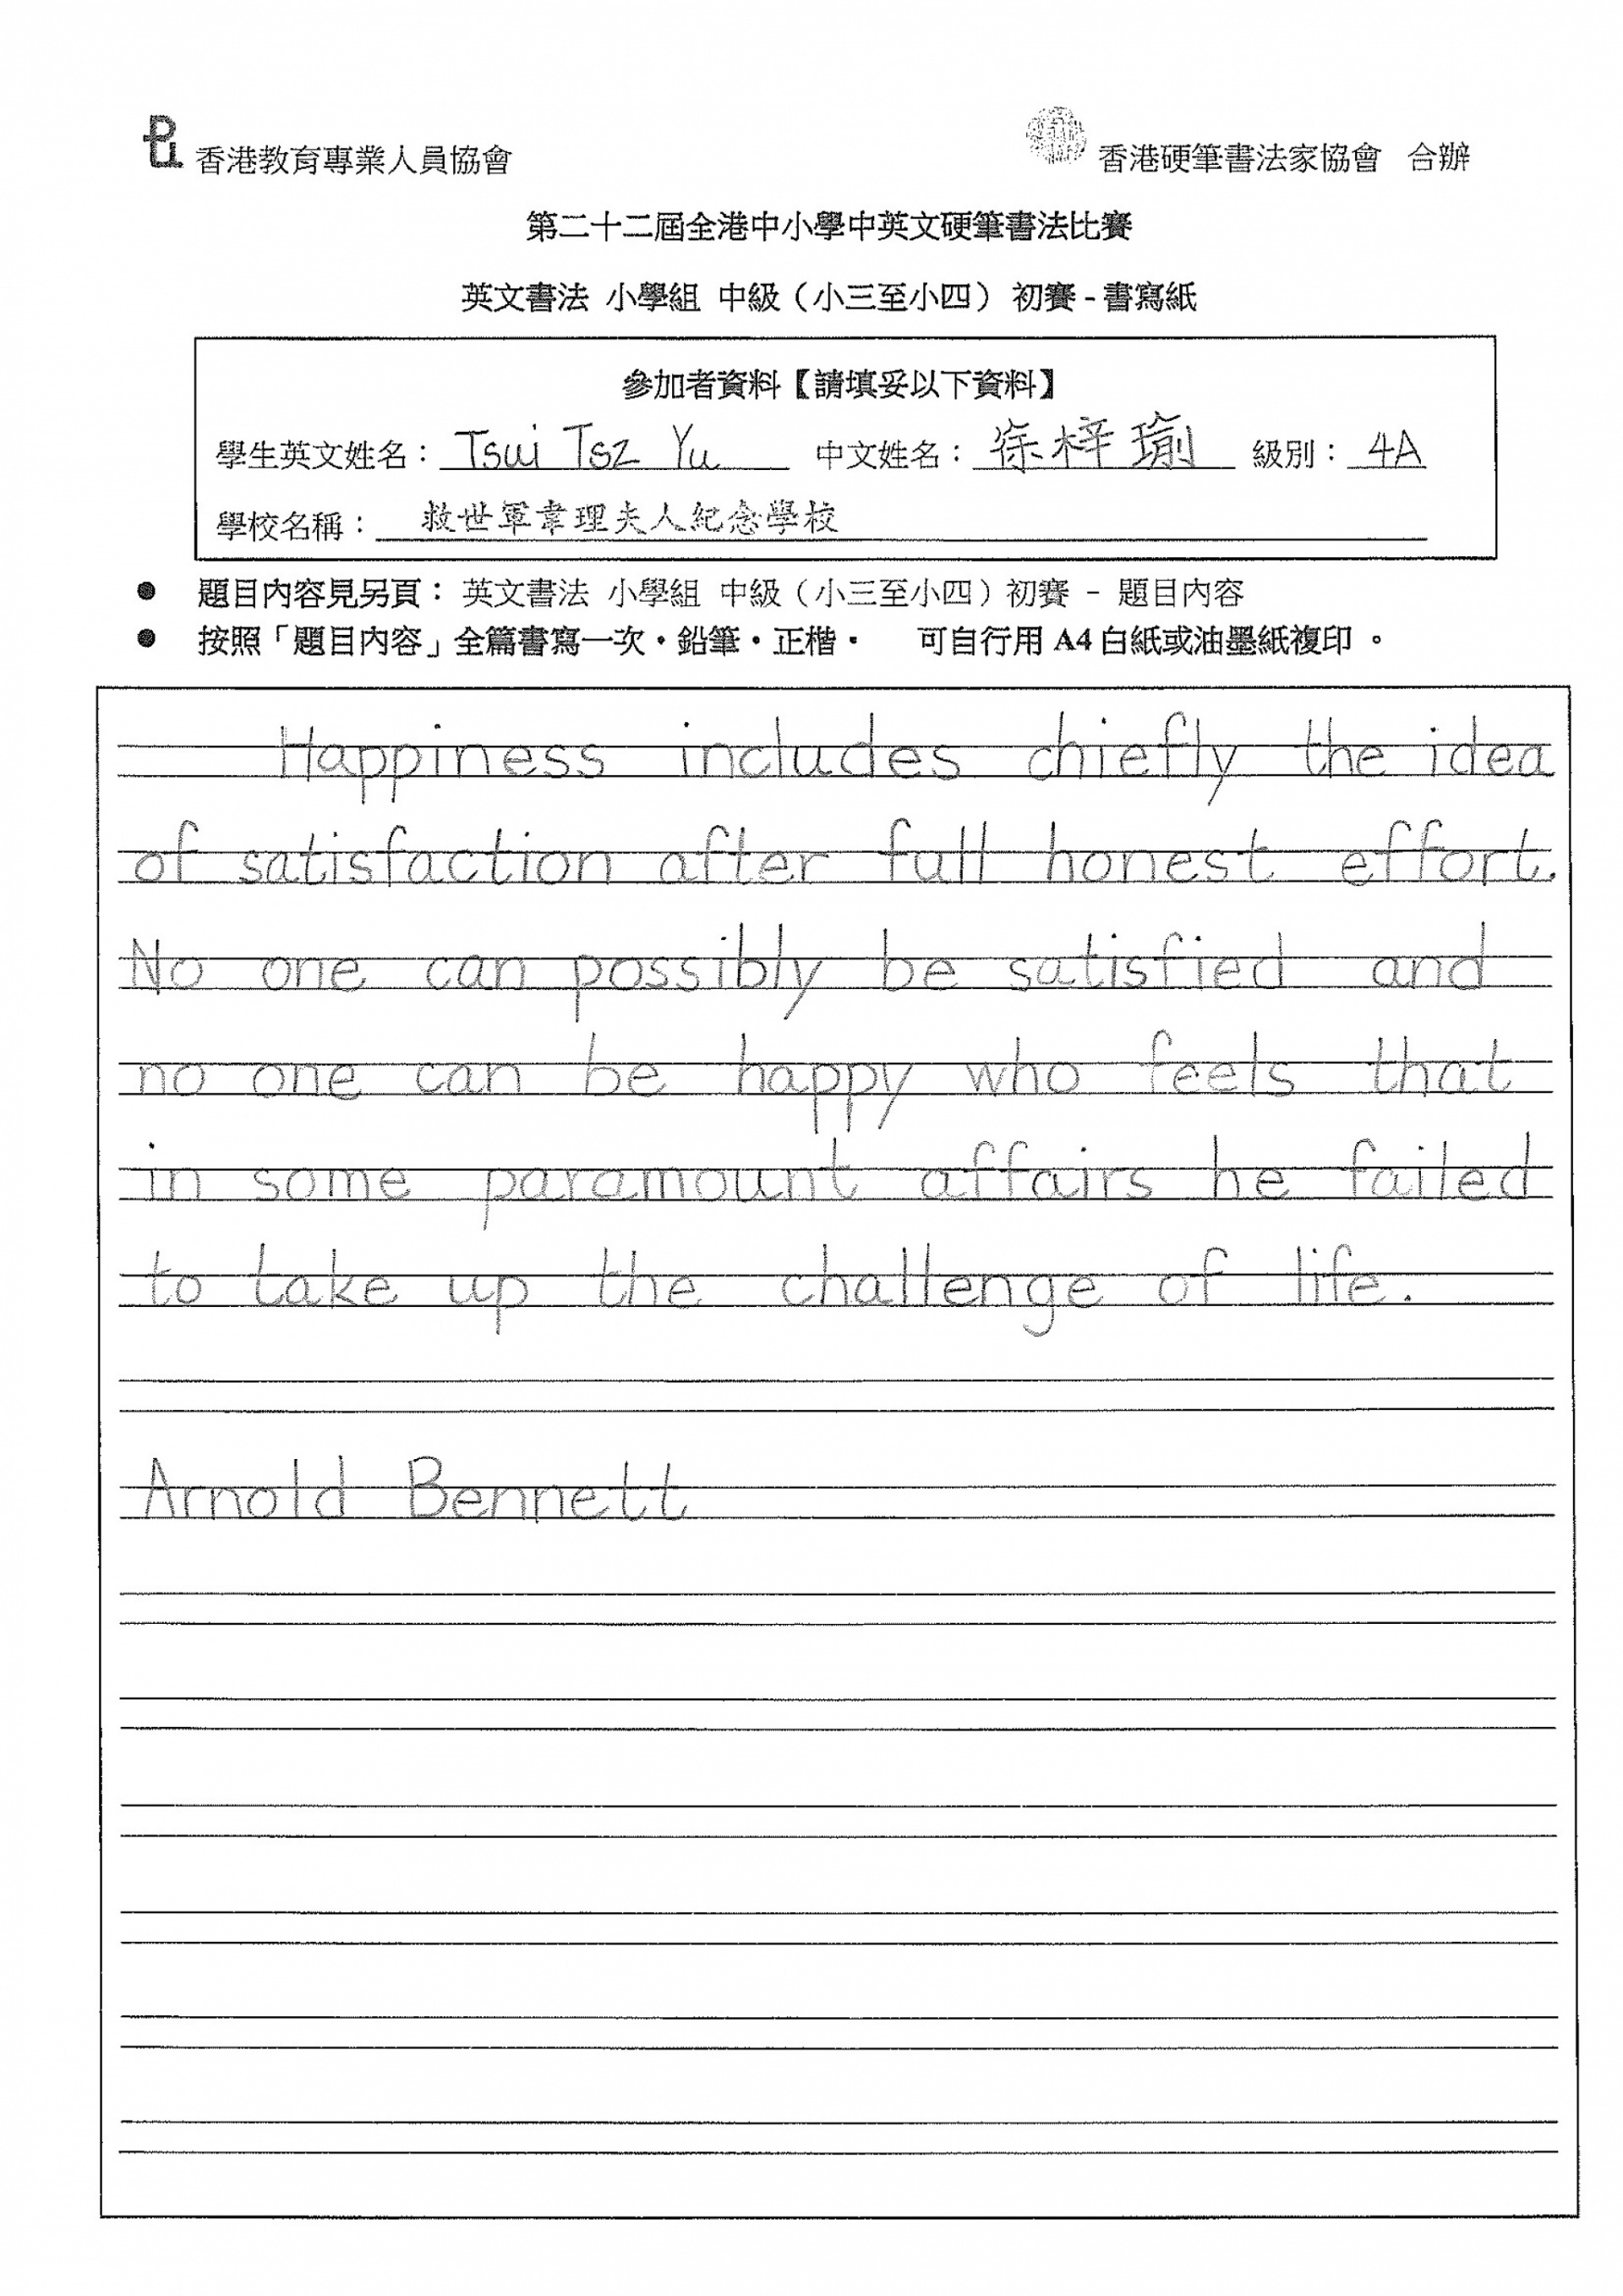 香港教育專業人員協會
香港硬筆書法家協會 合辦
第二十二屆全港中小學中英文硬筆書法比賽
英文書法 小學組 中級（小三至小四） 初賽 - 書寫紙
參加者資料【請填妥以下資料】
學生英文姓名： Tsui Tsz Yu 中文姓名： 徐梓瑜 級別： 4A
學校名稱： 救世軍韋理夫人紀念學校
● 題目內容見另頁： 英文書法 小學組 中級（小三至小四）初賽 - 題目內容
● 按照「題目內容」全篇書寫一次‧鉛筆‧正楷‧ 可自行用 A4 白紙或油墨紙複印。
Happiness includes chiefly the idea
of satisfaction after full honest effort.
No one can possibly be satisfied and
no one can be happy who feels that
in some paramount affairs he failed
to take up the challenge of life.
Arnold Bennett